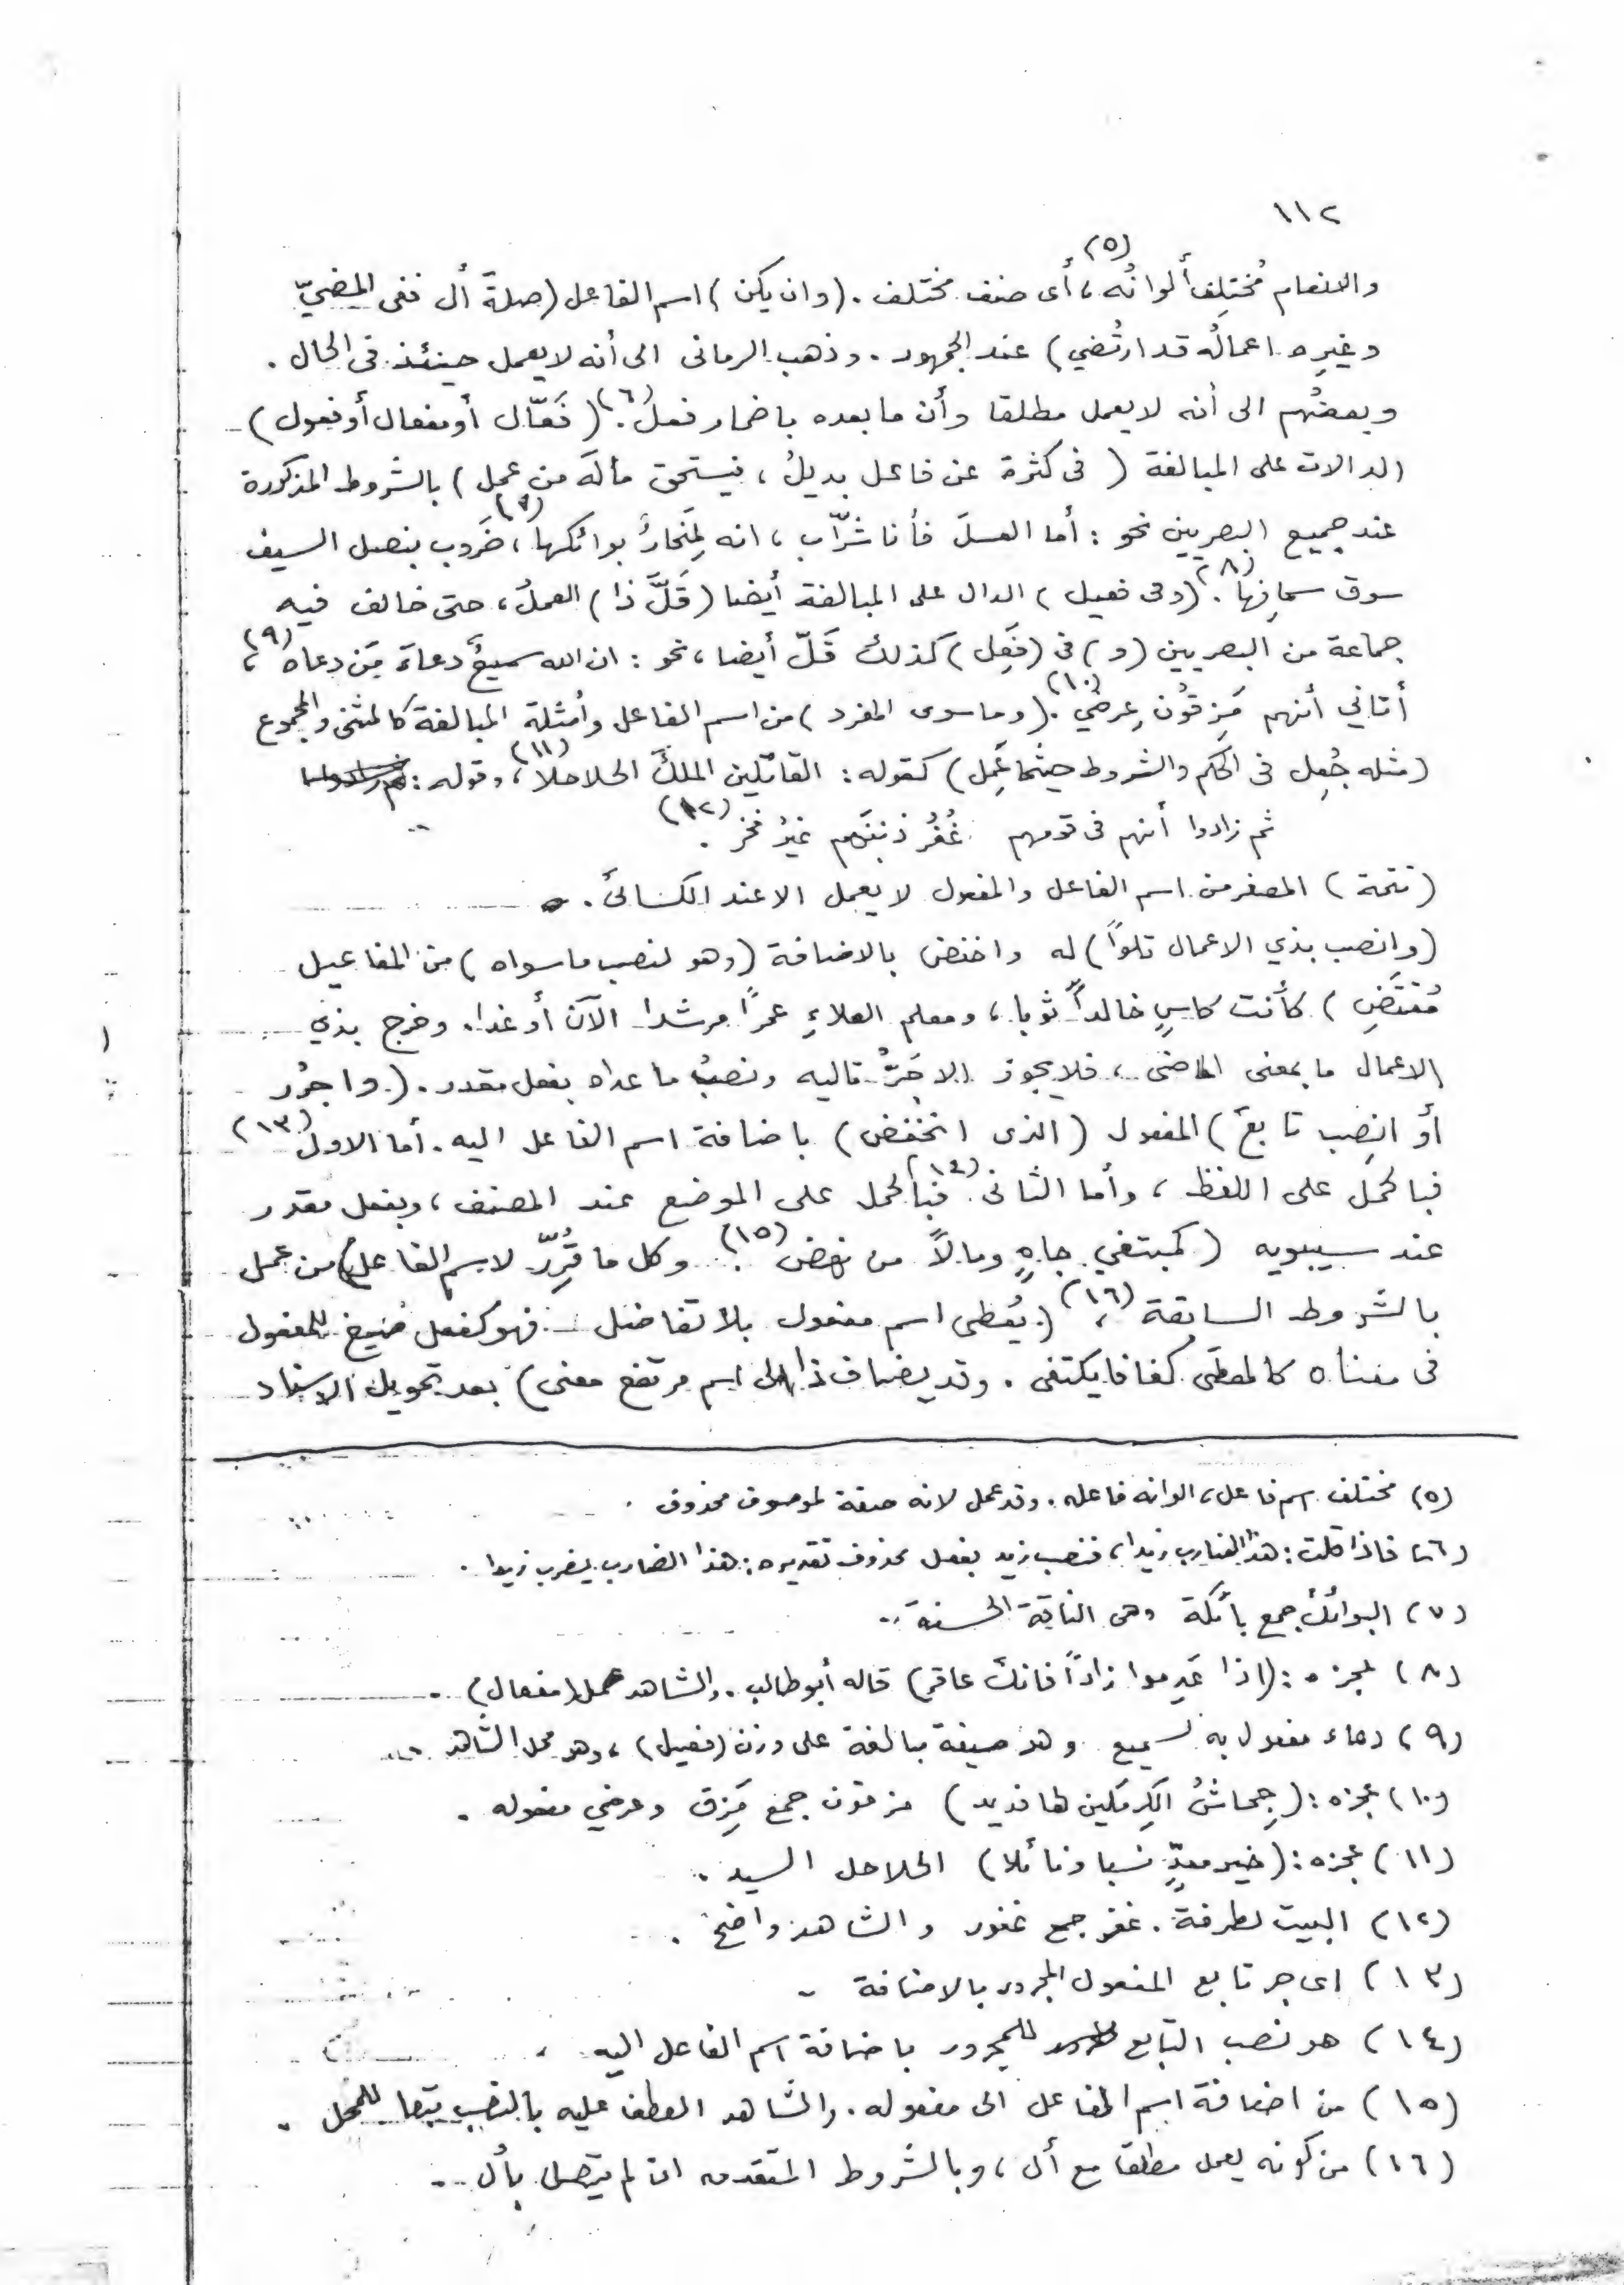 ١١٢
والانعام مُختلِف ألوانُه (٥)، أى صنف مختلف . (وان يكن) اسم الفاعل (صلةَ أل ففى المضيّ
وغيرِه اعمالُه قد ارتُضي) عند الجمهور . وذهب الرمانى الى أنه لا يعمل حينئذ فى الحال .
وبعضُهم الى أنه لا يعمل مطلقا وأن ما بعده باضمار فعل (٦). (فَعّال أو مفعال أو فعول)
الدالات على المبالغة (فى كثرة عن فاعل بديلُ ، فيستحق مالَه من عمل) بالشروط المذكورة
عند جميع البصريين نحو : أما العسلَ فأنا شرّاب ، انه لَمِنحارُ بوائكها (٧)، ضَروب بنصل السيف
سوق سمانِها (٨). (وفى فعيل) الدال على المبالغة أيضا (قَلَّ ذا) العملُ، حتى خالف فيه
جماعة من البصريين (و) فى (فَعِل) كذلك قَلّ أيضا ، نحو : ان الله سميعٌ دعاءَ مَن دعاه (٩)،
أتاني أنهم مَزِقُون عِرضي (١٠). (وما سوى المفرد) من اسم الفاعل وأمثلة المبالغة كالمثنى والمجموع
(مثله جُعِل فى الحكم والشروط حيثما عَمِل) كقوله : القاتلين الملكَ الحلاحلا (١١)، وقوله :
ثم زادوا أنهم فى قومهم غُفُرُ ذنبَهم غيرُ فخر (١٢).
(تتمة) المصغر من اسم الفاعل والمفعول لا يعمل الا عند الكسائى .
(وانصب بذي الاعمال تلواً) له واخفض بالاضافة (وهو لنصب ما سواه) من المفاعيل
مُقتَضِ) كأنت كاسٍ خالداً ثوبا ، ومعلم العلاءِ عمرًا مرشدا الآن أو غدا . وخرج بذي
الاعمال ما بمعنى الماضى ، فلا يجوز الا جَرُّ تاليه ونصبُ ما عداه بفعل مقدر . (واجرُر
أو انصِب تابعَ) المفعول (الذى انخفض) باضافة اسم الفاعل اليه . أما الاول (١٣)
فبالحمل على اللفظ ، وأما الثانى (١٤) فبالحمل على الموضع عند المصنف ، وبفعل مقدر
عند سيبويه (كمبتغي جاهٍ ومالاً من نهض (١٥). وكل ما قُرِّرَ لاسم الفاعل) من عمل
بالشروط السابقة (١٦)، (يُعطى اسم مفعول بلا تفاضل . فهو كفعل صيغ للمفعول
فى معناه كالمعطَى كفافا يكتفى . وقد يضاف ذا الى اسم مرتفع معنى) بعد تحويل الاسناد
(٥) مختلف اسم فاعل، الوانه فاعله . وقد عمل لانه صفة لموصوف محذوف .
(٦) فاذا قلت : هذا الضارب زيدا، فنصب زيد بفعل محذوف تقديره : هذا الضارب يضرب زيدا .
(٧) البوائك جمع بائكة وهى الناقة الحسنة .
(٨) عجزه : (اذا عَدِموا زاداً فانك عاقر) قاله أبو طالب . والشاهد عمل (مفعال) .
(٩) دعاء مفعول به لسميع وهو صيغة مبالغة على وزن (فعيل) ، وهو محل الشاهد .
(١٠) عجزه : (جِحاشُ الكِرمَلين لها فديد) مزقون جمع مَزِق وعرضي مفعوله .
(١١) عجزه : (خير معدٍّ نسبا ونائلا) الحلاحل السيد .
(١٢) البيت لطرفة . غفر جمع غفور والشاهد واضح .
(١٣) اى جر تابع المفعول المجرور بالاضافة .
(١٤) هو نصب التابع للمجرور باضافة اسم الفاعل اليه .
(١٥) من اضافة اسم الفاعل الى مفعوله . والشاهد العطف عليه بالنصب تبعا للمحل .
(١٦) من كونه يعمل مطلقا مع أل ، وبالشروط المتقدمه ان لم يتصل بأل .